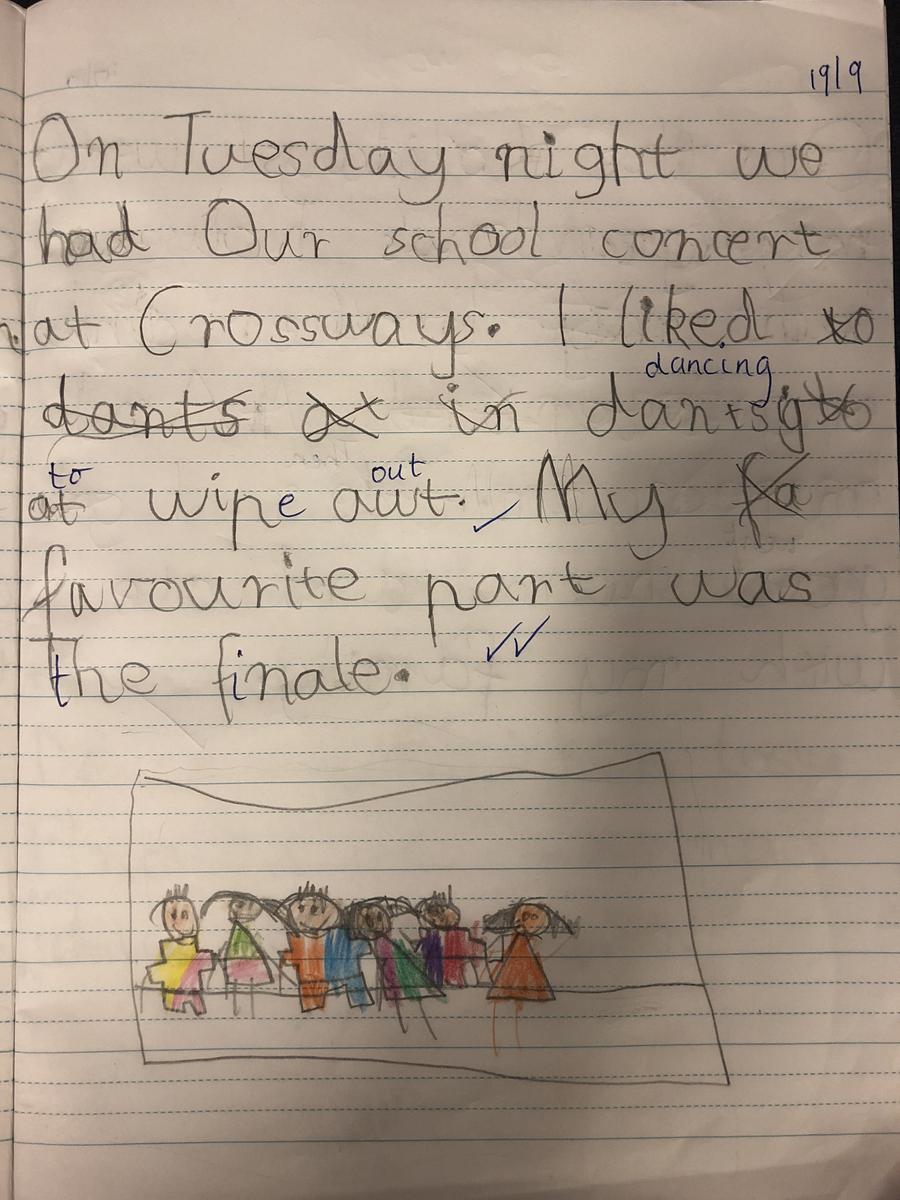 19/9
On Tuesday night we
had Our school concert
at Crossways. I liked to
dancing
dants at in dantsg to
to out
at wipe awt. My fa
favourite part was
the finale.